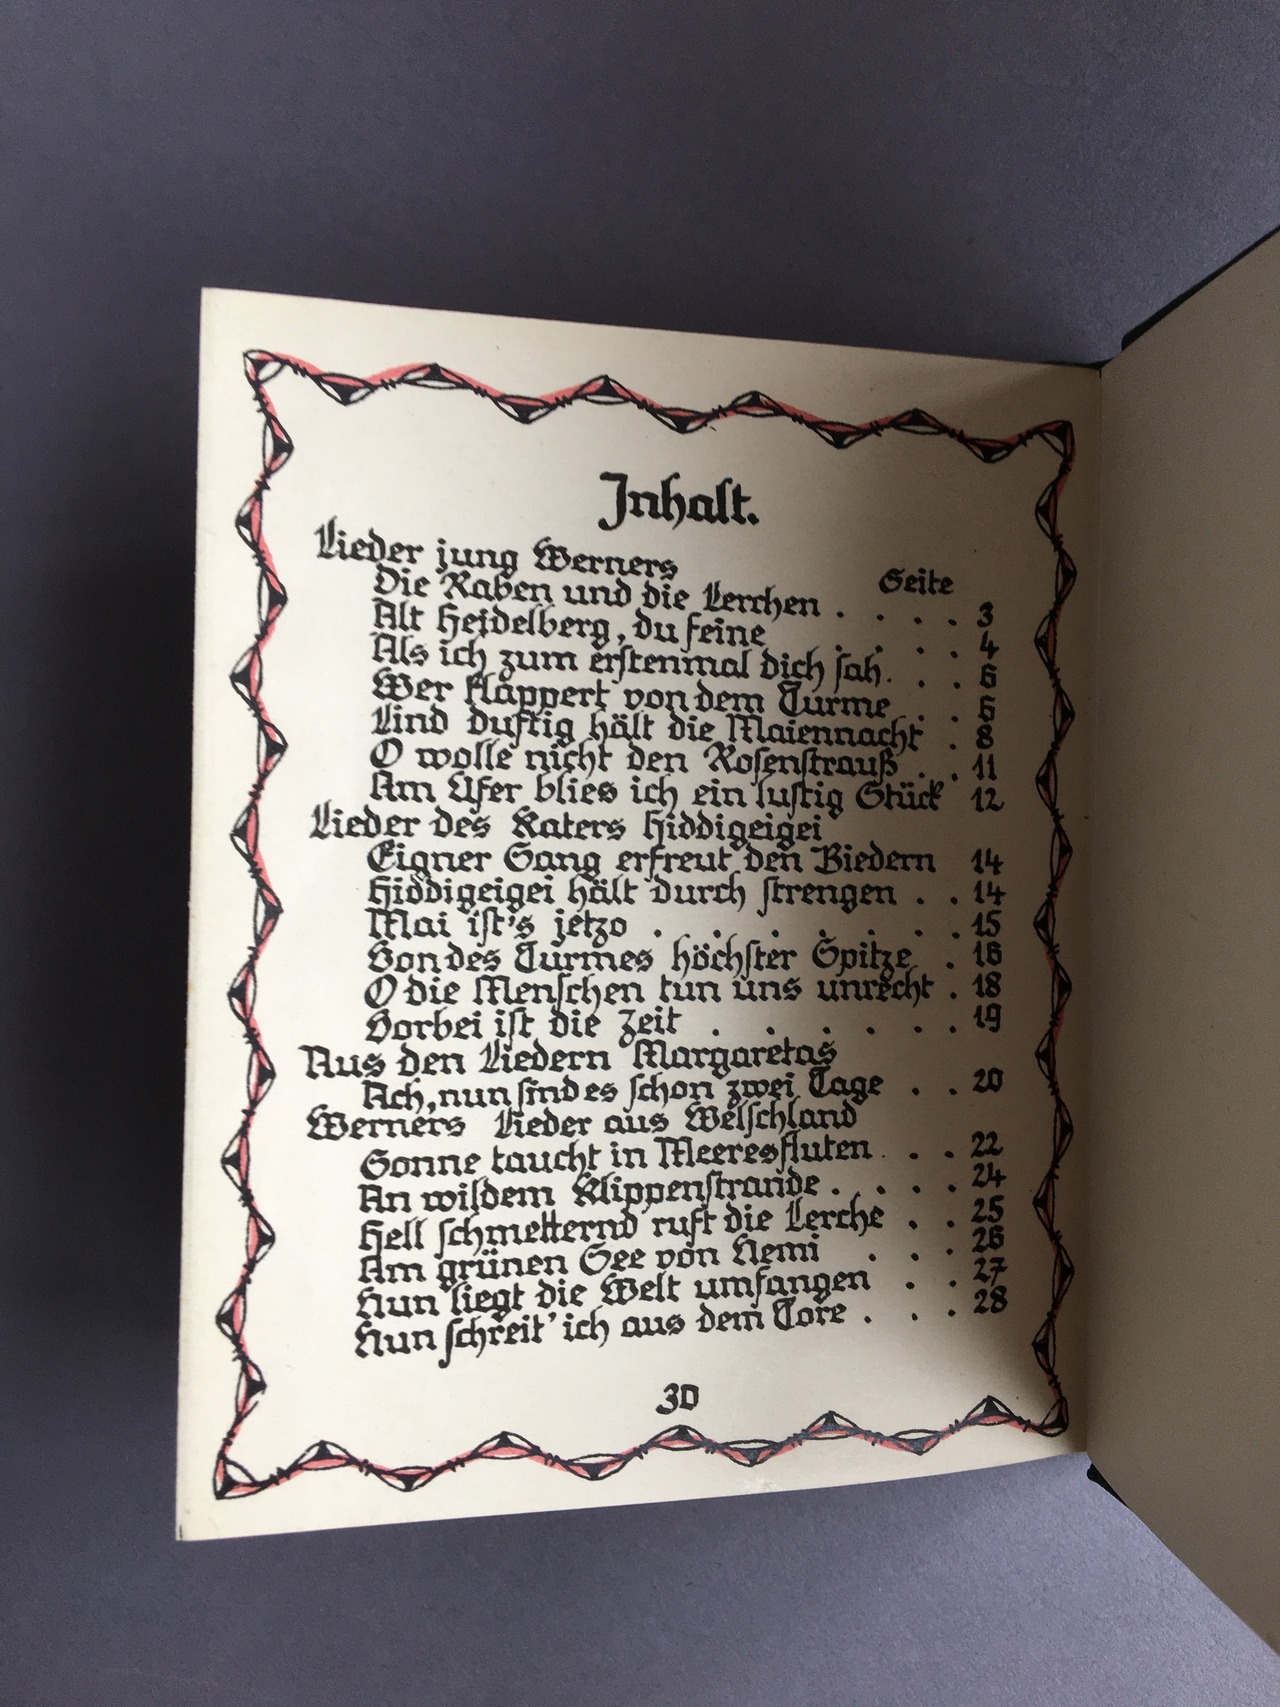 Inhalt.
Lieder jung Werners
Seite
Die Raben und die Lerchen . . . . . 3
Alt Heidelberg, du feine . . . . 4
Als ich zum erstenmal dich sah. . . 6
Wer klappert von dem Turme . . 6
Lind duftig hält die Maiennacht . 8
O wolle nicht den Rosenstrauß . . 11
Am Ufer blies ich ein lustig Stück 12
Lieder des Katers Hiddigeigei
Eigner Sang erfreut den Biedern 14
Hiddigeigei hält durch strengen . . 14
Mai ist's jetzo . . . . . . . 15
Von des Turmes höchster Spitze . 16
O die Menschen tun uns unrecht . 18
Vorbei ist die Zeit . . . . . . 19
Aus den Liedern Margaretas
Ach, nun sind es schon zwei Tage . . 20
Werners Lieder aus Welschland
Sonne taucht in Meeresfluten . . . 22
An wildem Klippenstrande . . . . 24
Hell schmetternd ruft die Lerche . . 25
Am grünen See von Nemi . . . 26
Nun liegt die Welt umfangen . . 27
Nun schreit' ich aus dem Tore . . . 28
30